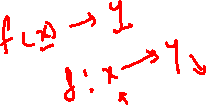 f(x) → y
f: x → y